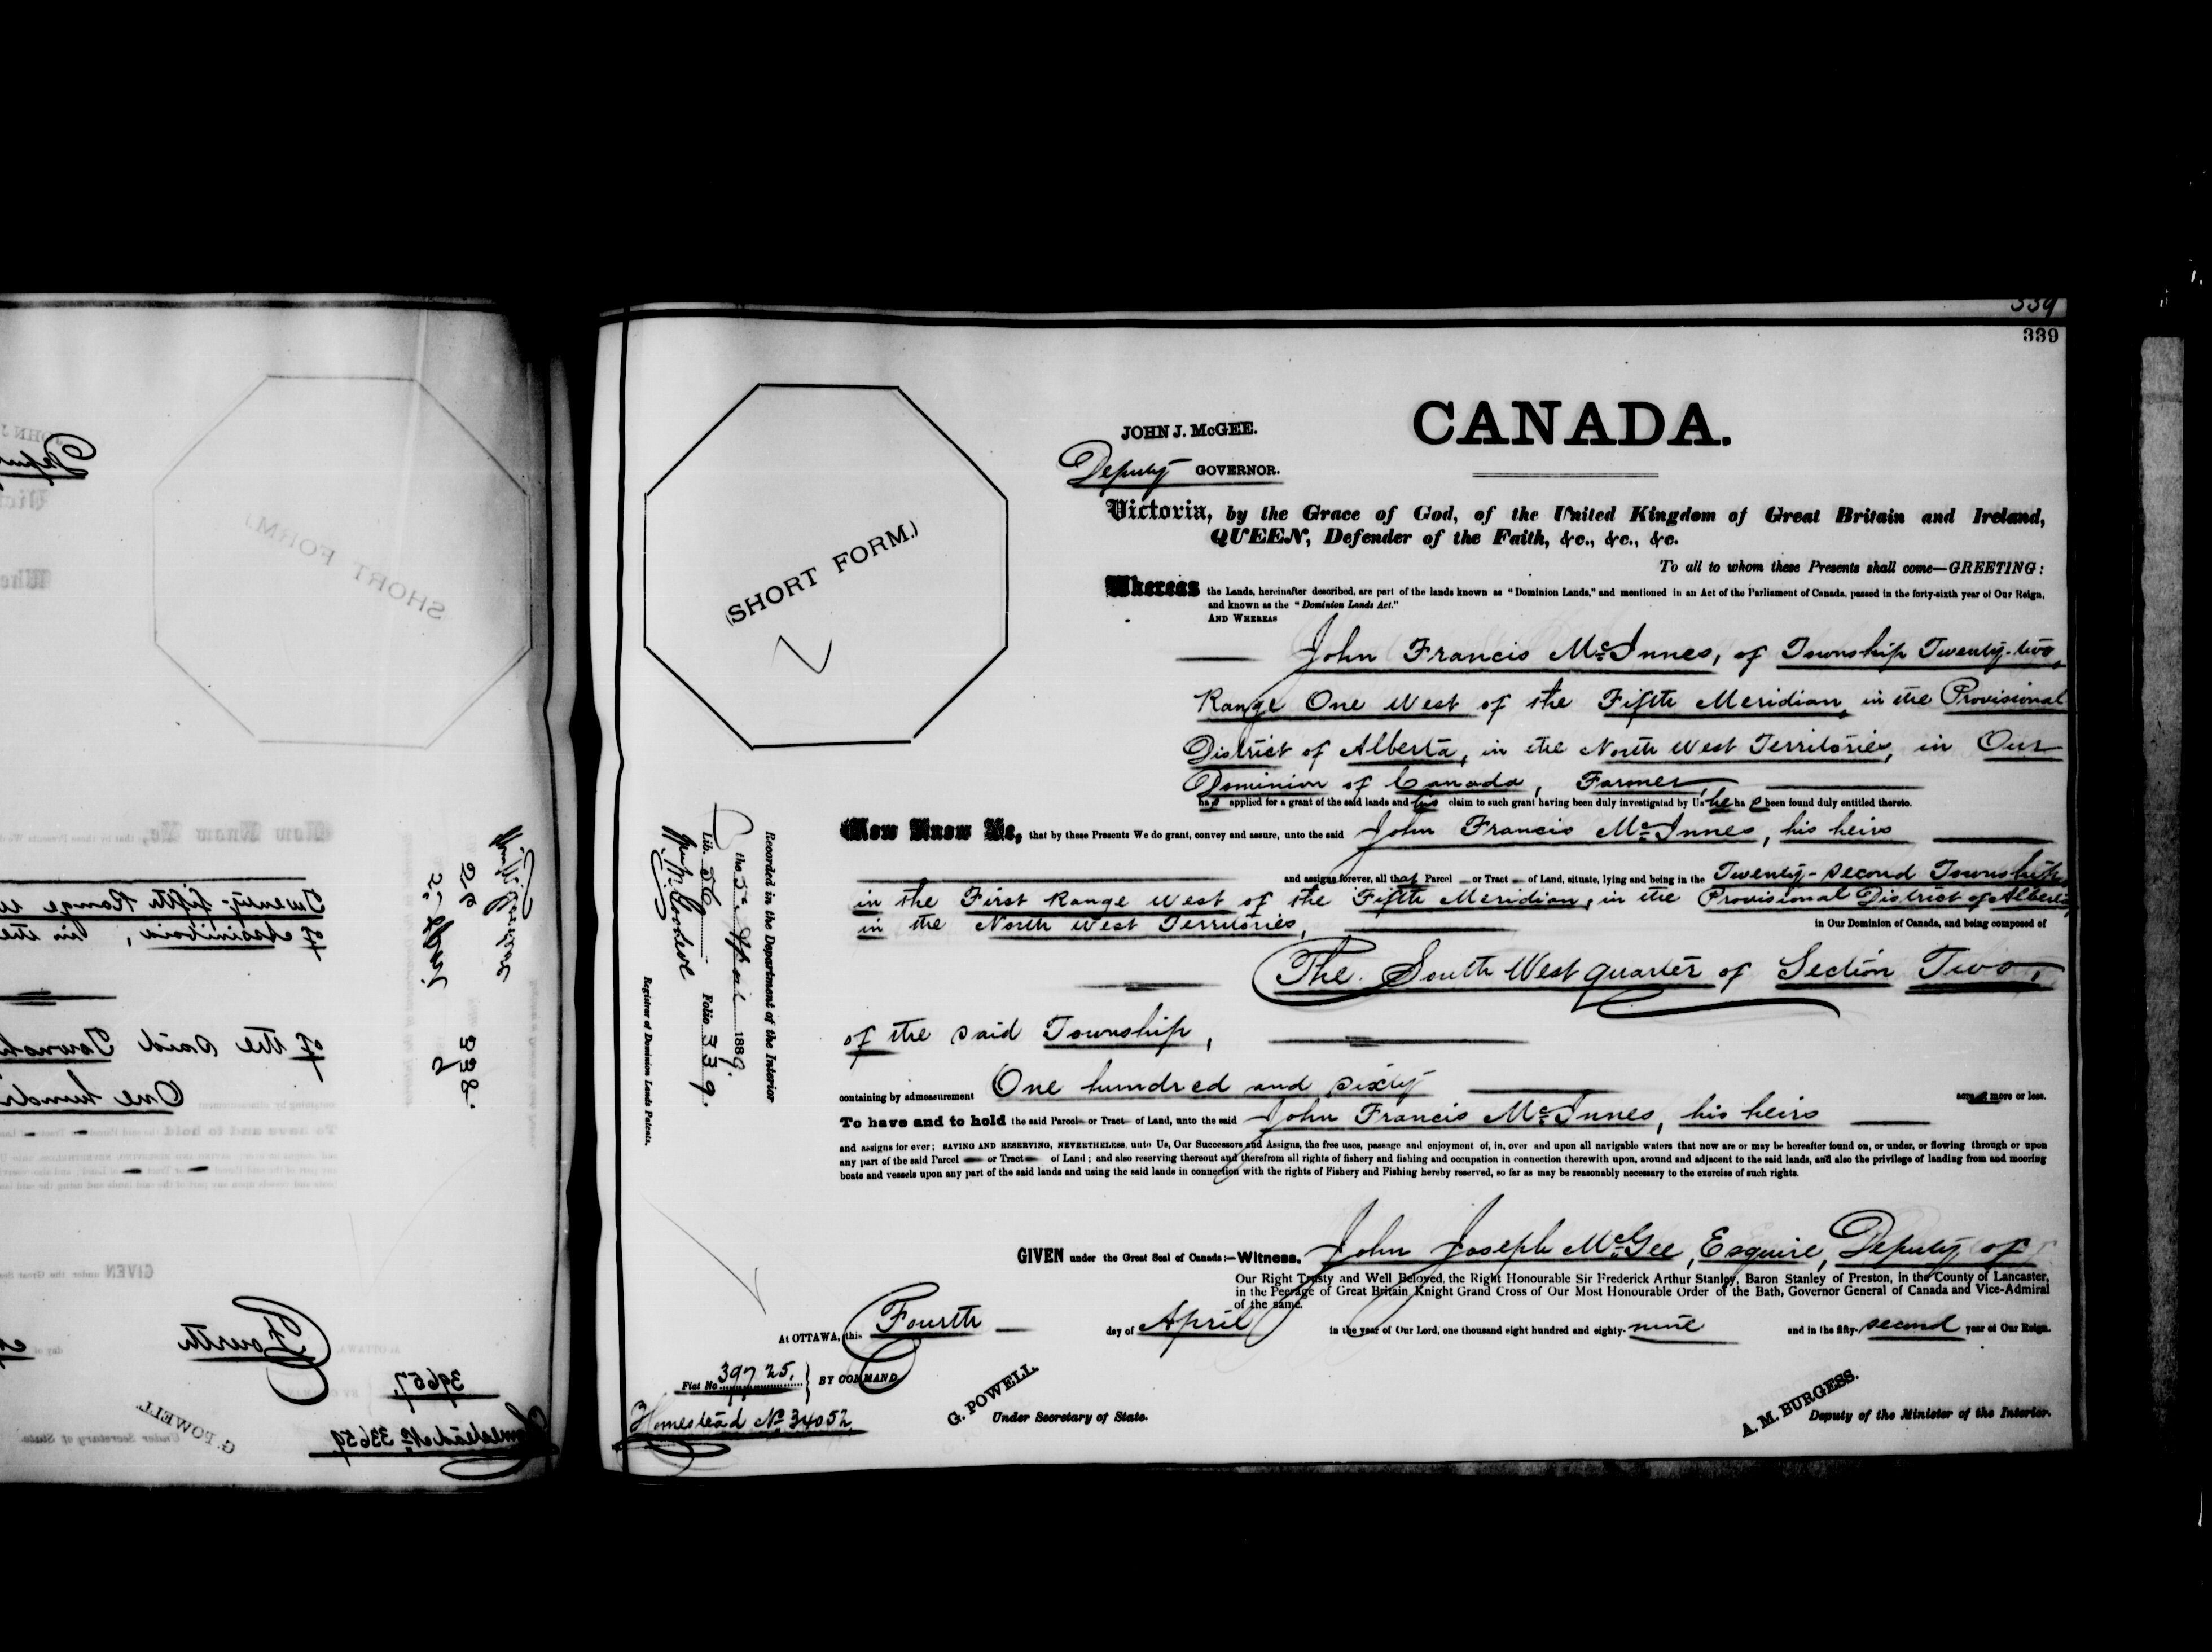 339
339
CANADA.
JOHN J. McGEE.
Deputy GOVERNOR.
(SHORT FORM.)
Victoria, by the Grace of God, of the United Kingdom of Great Britain and Ireland,
QUEEN, Defender of the Faith, &c., &c., &c.
To all to whom these Presents shall come—GREETING:
Whereas the Lands, hereinafter described, are part of the lands known as "Dominion Lands," and mentioned in an Act of the Parliament of Canada, passed in the forty-sixth year of Our Reign,
and known as the "Dominion Lands Act."
AND WHEREAS
John Francis McInnes, of Township Twenty-two,
Range One West of the Fifth Meridian, in the Provisional
District of Alberta, in the North West Territories, in Our
Dominion of Canada, Farmer,
has applied for a grant of the said lands and his claim to such grant having been duly investigated by Us he has been found duly entitled thereto.
Now Know Ye, that by these Presents We do grant, convey and assure, unto the said John Francis McInnes, his heirs
and assigns forever, all that Parcel or Tract of Land, situate, lying and being in the Twenty-second Township
in the First Range West of the Fifth Meridian, in the Provisional District of Alberta
in the North West Territories,
in Our Dominion of Canada, and being composed of
The South West quarter of Section Two,
of the said Township,
containing by admeasurement One hundred and sixty acres more or less.
To have and to hold the said Parcel or Tract of Land, unto the said John Francis McInnes, his heirs
and assigns for ever; SAVING AND RESERVING, NEVERTHELESS, unto Us, Our Successors and Assigns, the free uses, passage and enjoyment of, in, over and upon all navigable waters that now are or may be hereafter found on, or under, or flowing through or upon
any part of the said Parcel or Tract of Land; and also reserving thereout and therefrom all rights of fishery and fishing and occupation in connection therewith upon, around and adjacent to the said lands, and also the privilege of landing from and mooring
boats and vessels upon any part of the said lands and using the said lands in connection with the rights of Fishery and Fishing hereby reserved, so far as may be reasonably necessary to the exercise of such rights.
GIVEN under the Great Seal of Canada:—Witness, John Joseph McGee, Esquire, Deputy of
Our Right Trusty and Well Beloved, the Right Honourable Sir Frederick Arthur Stanley, Baron Stanley of Preston, in the County of Lancaster,
in the Peerage of Great Britain, Knight Grand Cross of Our Most Honourable Order of the Bath, Governor General of Canada and Vice-Admiral
of the same.
At OTTAWA, this Fourth day of April in the year of Our Lord, one thousand eight hundred and eighty-nine and in the fifty-second year of Our Reign.
Fiat No 39725. } BY COMMAND,
Homestead No 34052.
G. POWELL.
Under Secretary of State.
A. M. BURGESS.
Deputy of the Minister of the Interior.
Recorded in the Department of the Interior
the 5th April 1889.
Lib. 56 Folio 339.
Wm. M. Goodeve
Registrar of Dominion Lands Patents.
(SHORT FORM.)
Now Know Ye,
Twenty-fifth Range
of Assiniboia, in the
of the said
One
GIVEN
Fourth
39657
Homestead No 33659
G. POWELL.
Under Secretary of State.
338.